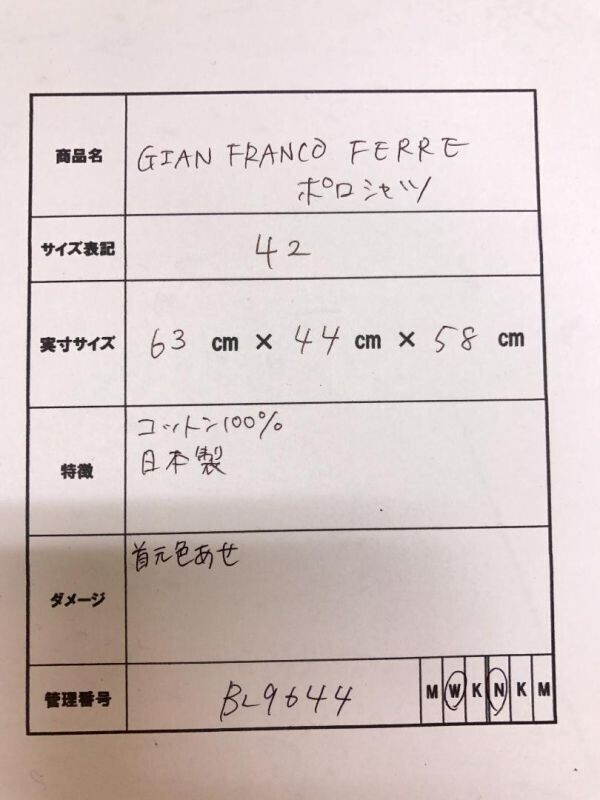 商品名 GIAN FRANCO FERRE
ポロシャツ
サイズ表記 42
実寸サイズ 63 cm × 44 cm × 58 cm
特徴 コットン100%
日本製
ダメージ 首元色あせ
管理番号 BL9644 M W K N K M